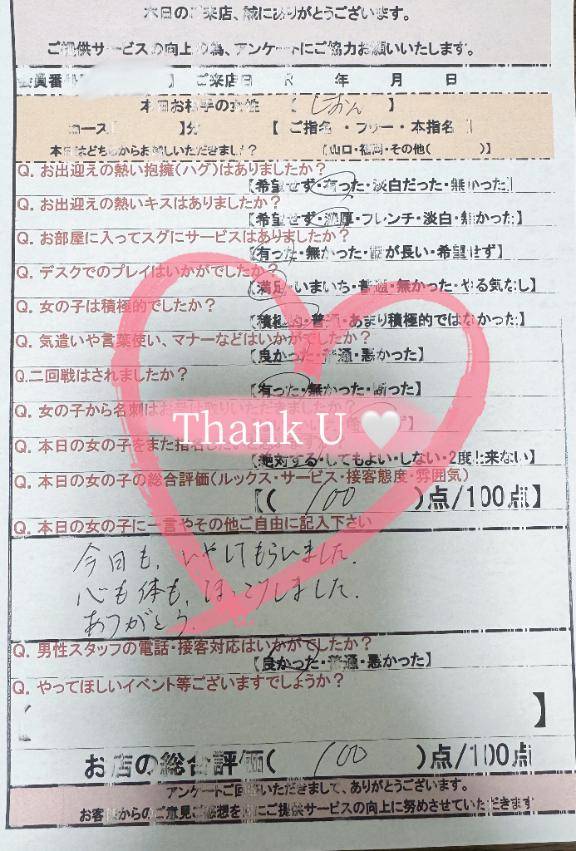 本日のご来店、誠にありがとうございます。
ご提供サービスの向上の為、アンケートにご協力お願いいたします。
会員番 】 ご来店日 R 年 月 日
本日お相手の女性 【 しおん 】
コース 】分 【 ご指名 ・ フリー ・ 本指名
本日はどちらからお越しいただきました? 【山口・福岡・その他( )】
Q. お出迎えの熱い抱擁(ハグ)はありましたか?
【希望せず・有った・淡白だった・無かった】
Q. お出迎えの熱いキスはありましたか?
【希望せず・濃厚・フレンチ・淡白・無かった】
Q. お部屋に入ってスグにサービスはありましたか?
【有った・無かった・話が長い・希望せず】
Q. デスクでのプレイはいかがでしたか?
【満足・いまいち・普通・無かった・やる気なし】
Q. 女の子は積極的でしたか?
【積極的・普通・あまり積極的ではなかった】
Q. 気遣いや言葉使い、マナーなどはいかがでしたか?
【良かった・普通・悪かった】
Q.二回戦はされましたか?
【有った・無かった・断った】
Q. 女の子から名刺はお受け取りいただきましたか?
Thank U
Q. 本日の女の子をまた指名したい
【絶対する・してもよい・しない・2度と来ない】
Q. 本日の女の子の総合評価(ルックス・サービス・接客態度・雰囲気)
【( 100 )点/100点】
Q. 本日の女の子に一言やその他ご自由に記入下さい
今回も、いやしてもらいました.
心も体も、ほっこりしました.
ありがとう.
Q. 男性スタッフの電話・接客対応はいかがでしたか?
【良かった・普通・悪かった】
Q. やってほしいイベント等ございますでしょうか?
【 】
お店の総合評価( 100 )点/100点
アンケートご回答いただきまして、ありがとうございます。
お客様からのご意見ご感想を にご提供サービスの向上に努めさせていただきます